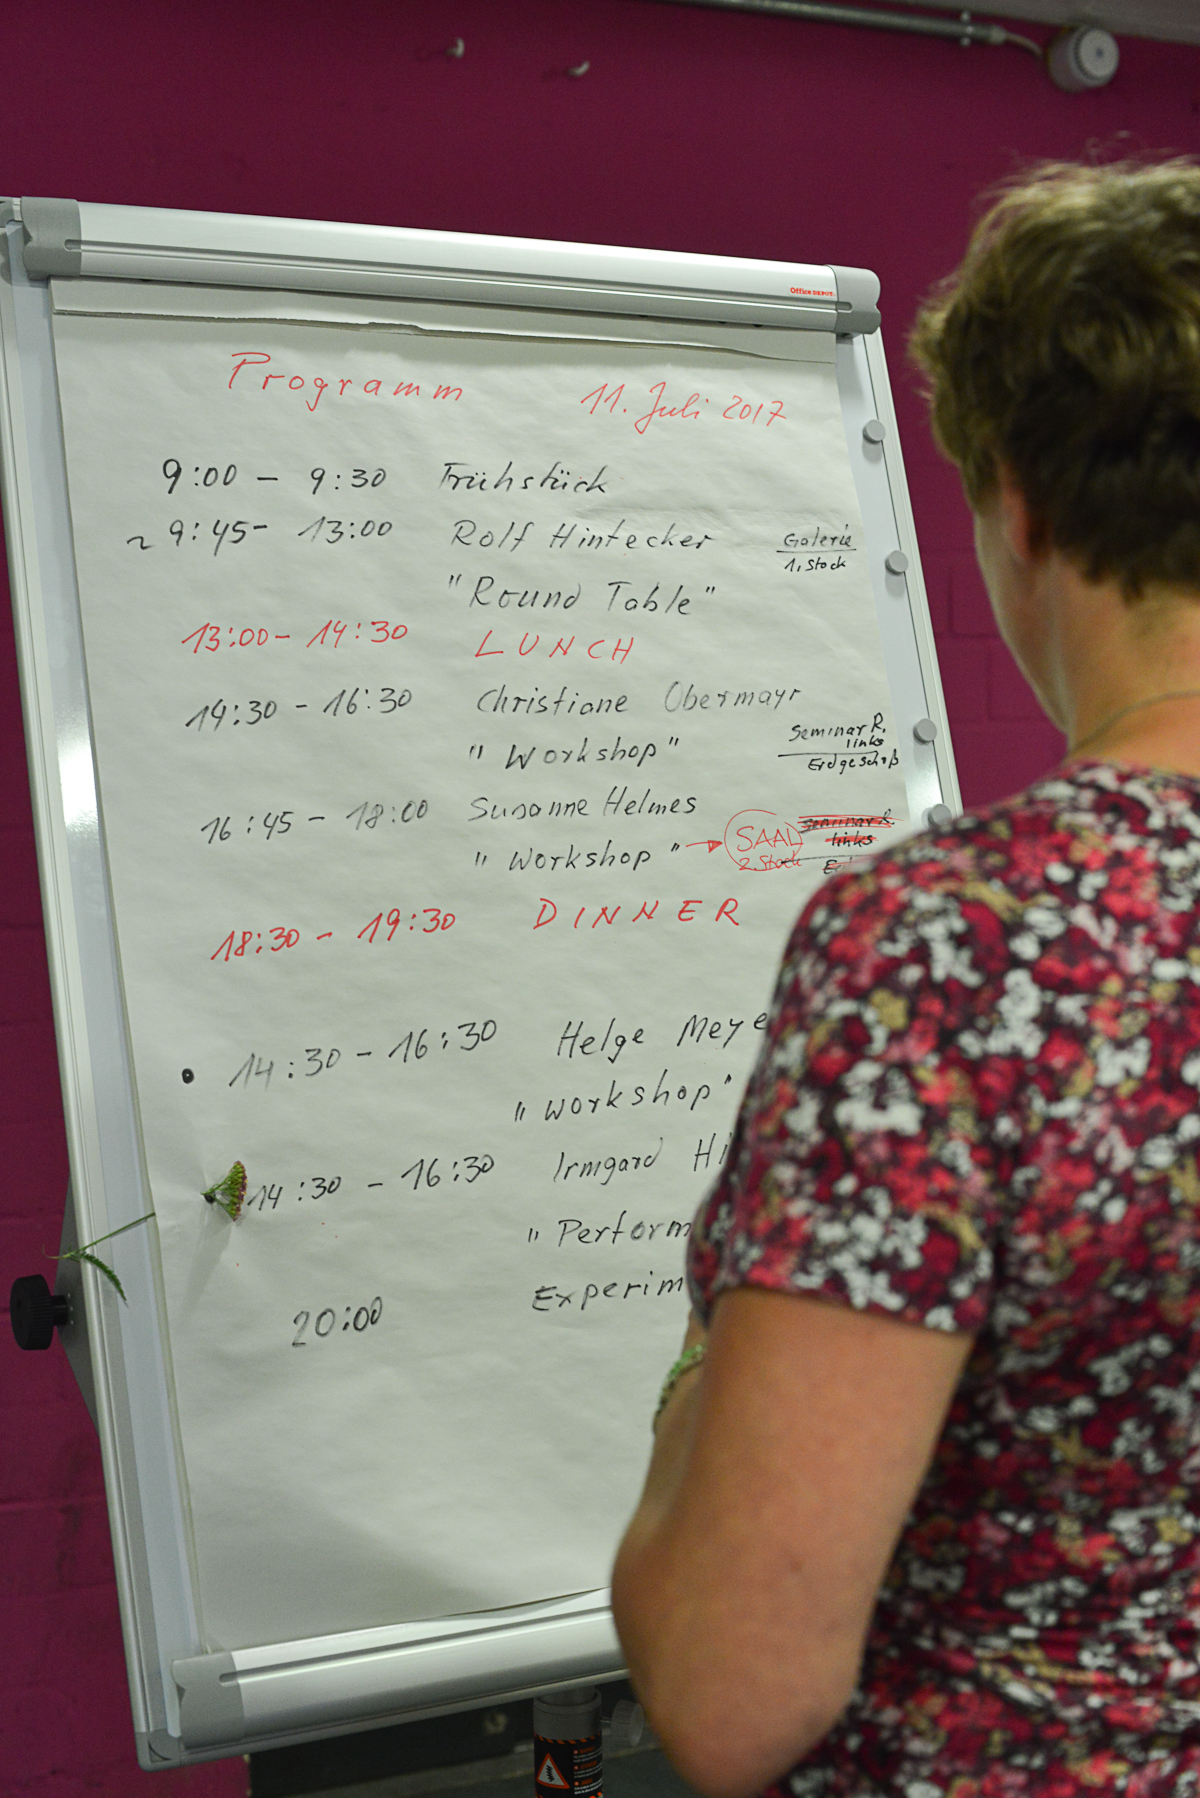 Office DEPOT
Programm 11. Juli 2017
9:00 – 9:30 Frühstück
~ 9:45 – 13:00 Rolf Hintecker Galerie
1. Stock
"Round Table"
13:00 – 14:30 LUNCH
14:30 – 16:30 Christiane Obermayr
"Workshop" Seminar R.
links
Erdgeschoß
16:45 – 18:00 Susanne Helmes
"Workshop" → SAAL Seminar R.
2. Stock links
18:30 – 19:30 DINNER
• 14:30 – 16:30 Helge Meye
"Workshop"
14:30 – 16:30 Irmgard Hi
"Perform
20:00 Experim